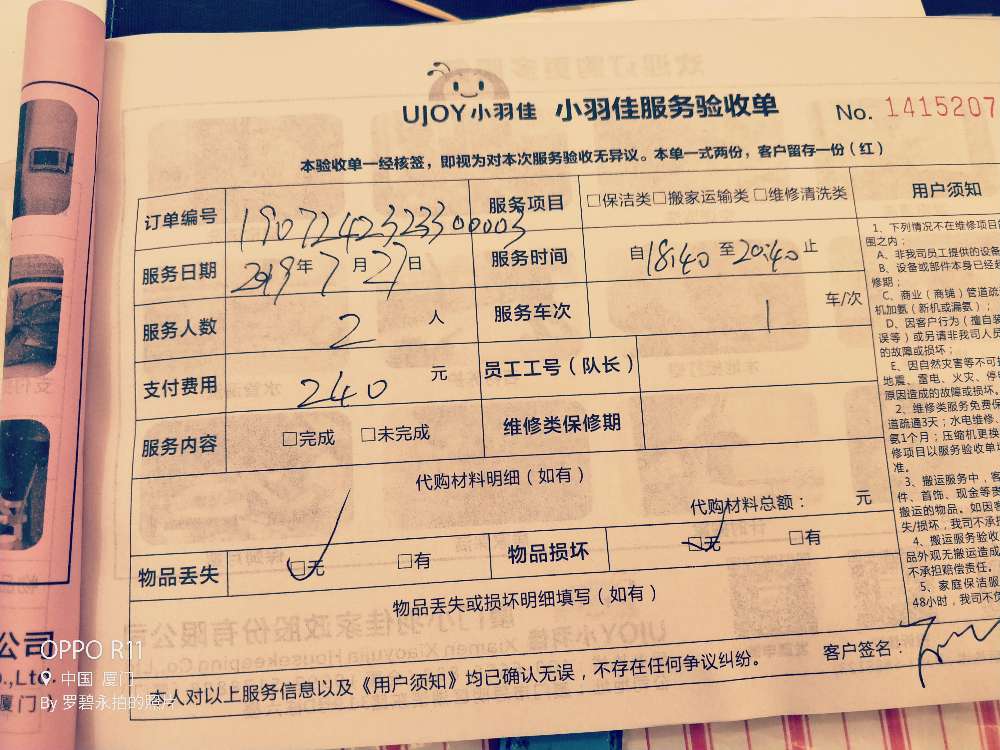 UJOY小羽佳 小羽佳服务验收单 No. 1415207
本验收单一经核签，即视为对本次服务验收无异议。本单一式两份，客户留存一份（红）
订单编号 1907242323300003 服务项目 □保洁类□搬家运输类□维修清洗类
服务日期 2019年7月27日 服务时间 自18:40至20:40止
服务人数 2 人 服务车次 1 车/次
支付费用 240 元 员工工号（队长）
服务内容 □完成 □未完成 维修类保修期
代购材料明细（如有）
代购材料总额： 元
物品丢失 □无 □有 物品损坏 □无 □有
物品丢失或损坏明细填写（如有）
本人对以上服务信息以及《用户须知》均已确认无误，不存在任何争议纠纷。 客户签名：
用户须知
1、下列情况不在维修项目
围之内：
A、非我司员工提供的设备
B、设备或部件本身已经
修期；
C、商业（商铺）管道疏
机加氨（新机或漏氨）；
D、因客户行为（擅自装
误等）或另请非我司人员
的故障或损坏；
E、因自然灾害等不可
地震、雷电、火灾、停
原因造成的故障或损坏。
2、维修类服务免费保
道疏通3天；水电维修、
氨1个月；压缩机更换
修项目以服务验收单
准。
3、搬运服务中，客
件、首饰、现金等贵
搬运的物品。如因客
失/损坏，我司不承担
4、搬运服务验收
品外观无搬运造成
不承担赔偿责任。
5、家庭保洁服
48小时，我司不负
公司
.,Ltd.
厦门
OPPO R11
中国 厦门
By 罗碧永拍的照片